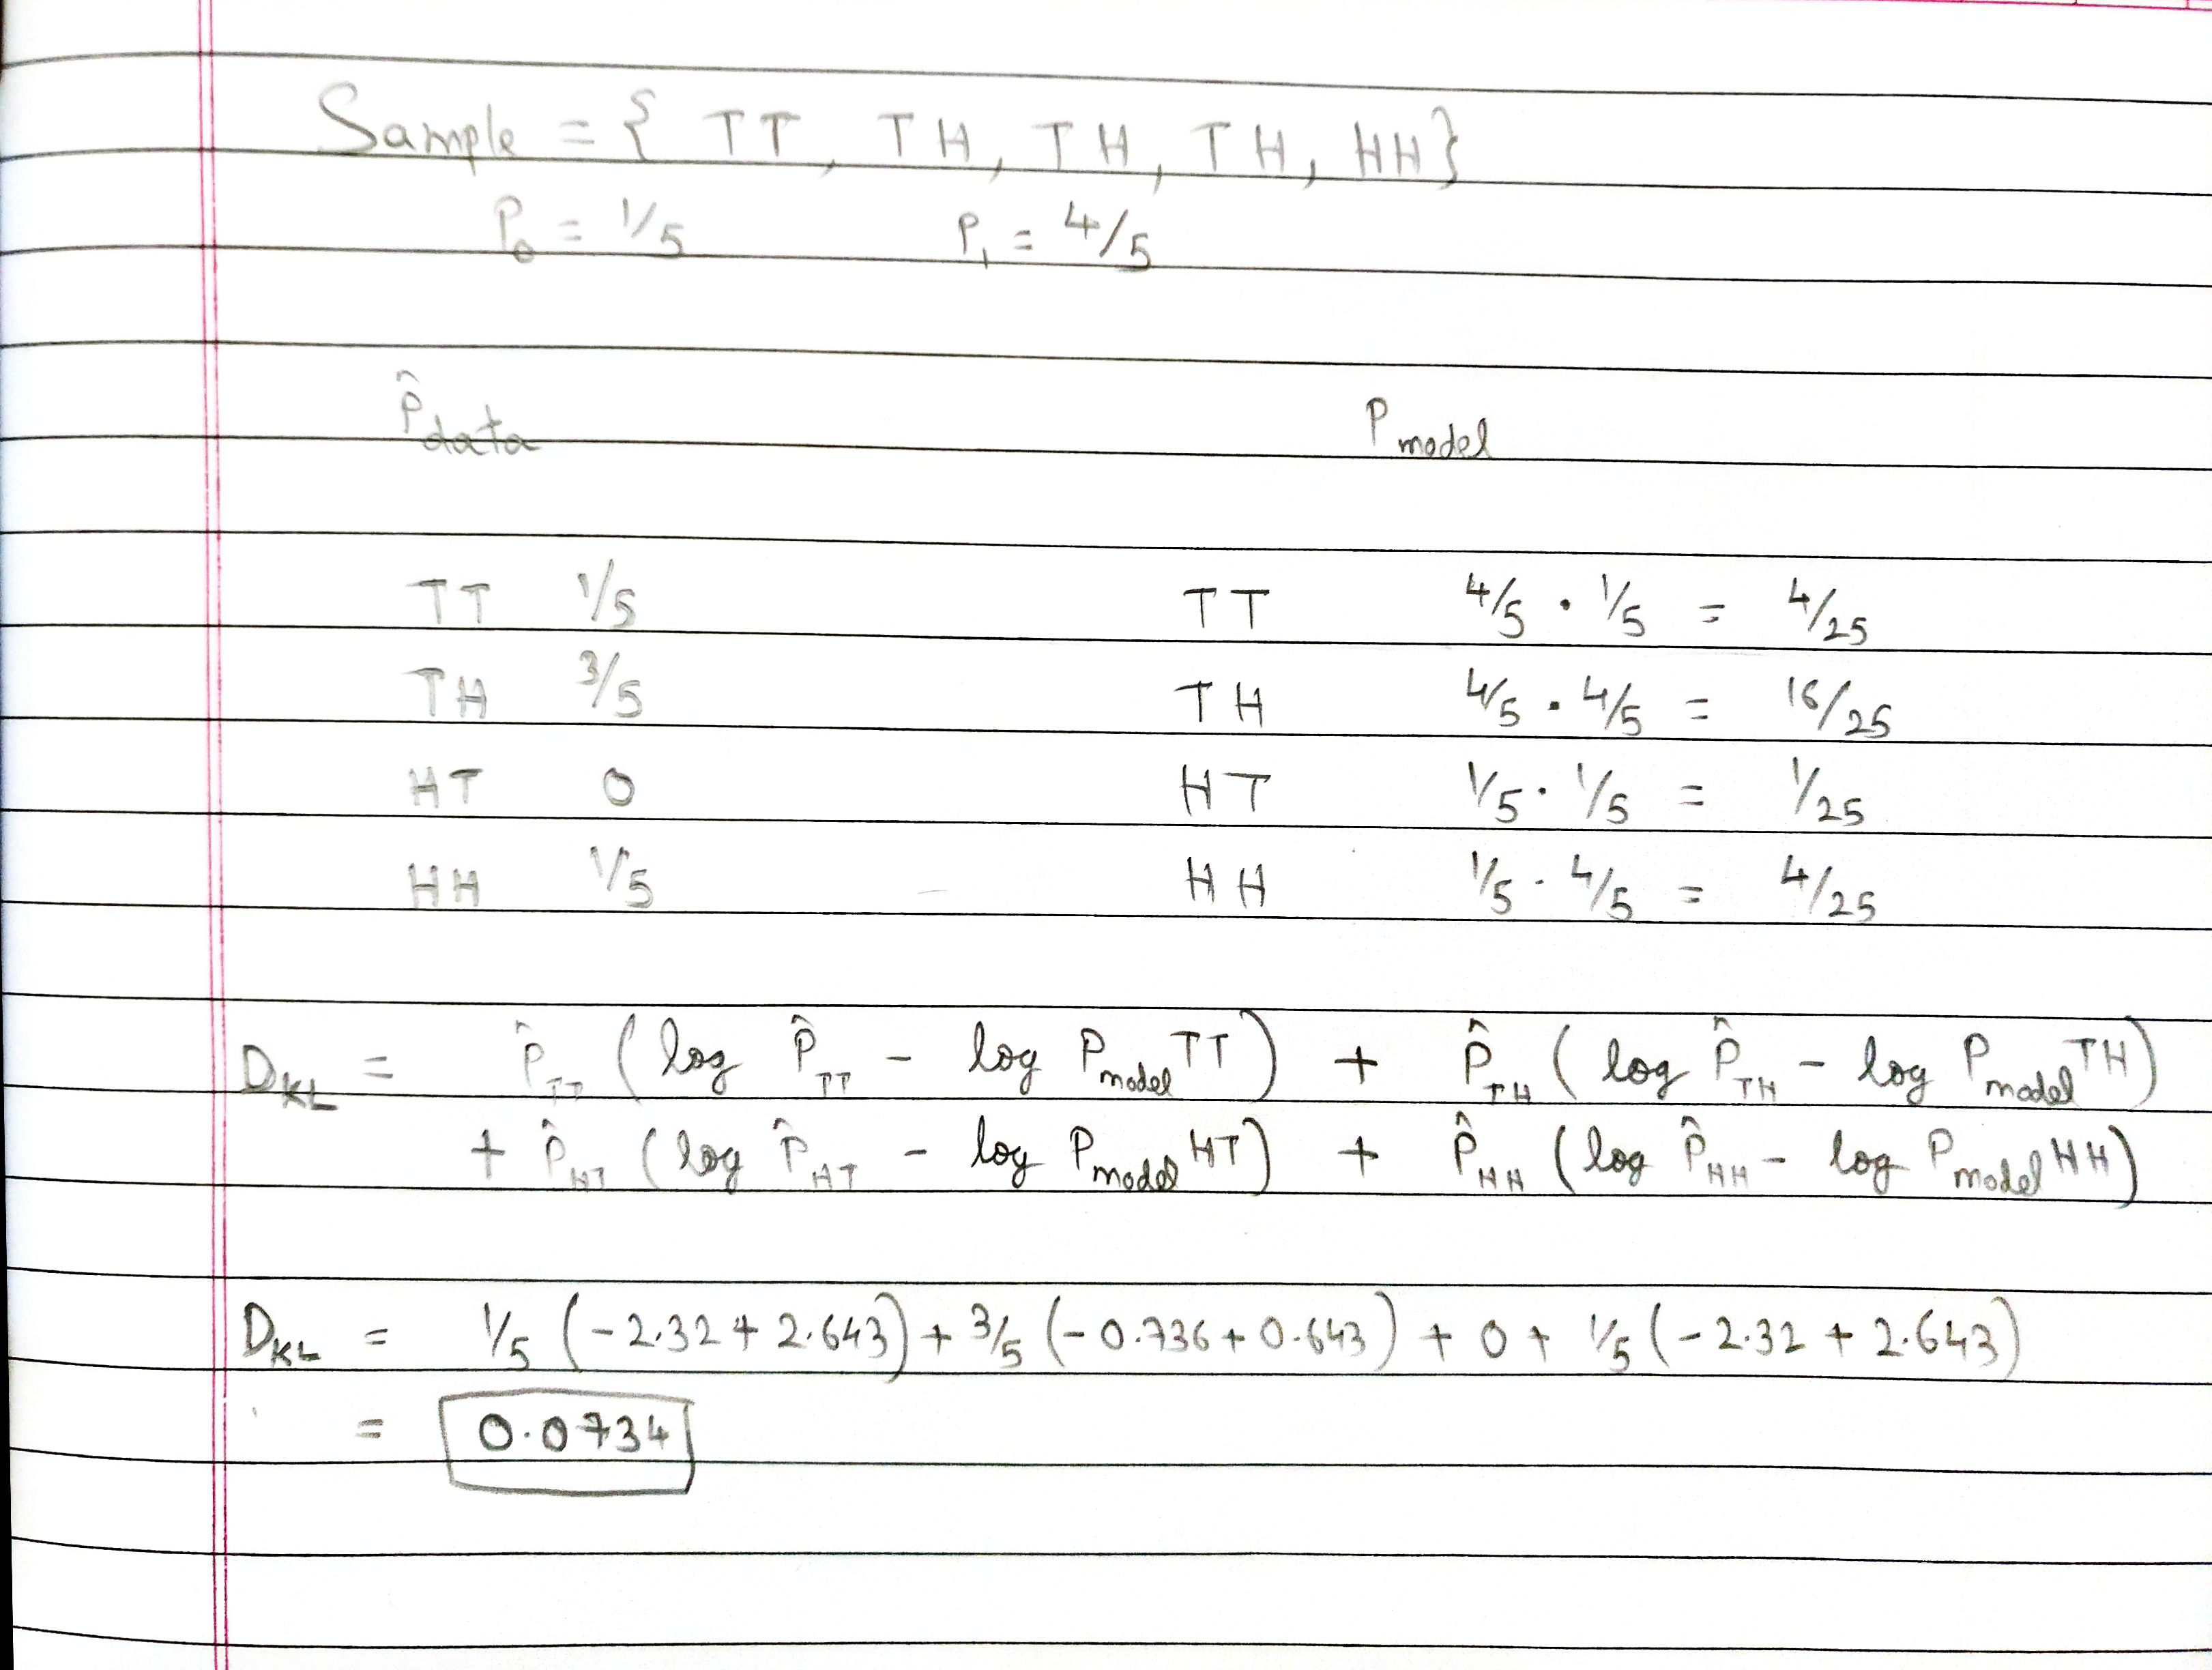 Sample = { TT, TH, TH, TH, HH}
P₀ = 1/5 P₁ = 4/5
P̂data Pmodel
TT 1/5 TT 4/5 · 1/5 = 4/25
TH 3/5 TH 4/5 · 4/5 = 16/25
HT 0 HT 1/5 · 1/5 = 1/25
HH 1/5 HH 1/5 · 4/5 = 4/25
DKL = P̂TT ( log P̂TT - log Pmodel TT ) + P̂TH ( log P̂TH - log Pmodel TH )
+ P̂HT ( log P̂HT - log Pmodel HT ) + P̂HH ( log P̂HH - log Pmodel HH )
DKL = 1/5 ( -2.32 + 2.643 ) + 3/5 ( -0.736 + 0.643 ) + 0 + 1/5 ( -2.32 + 2.643 )
= 0.0734